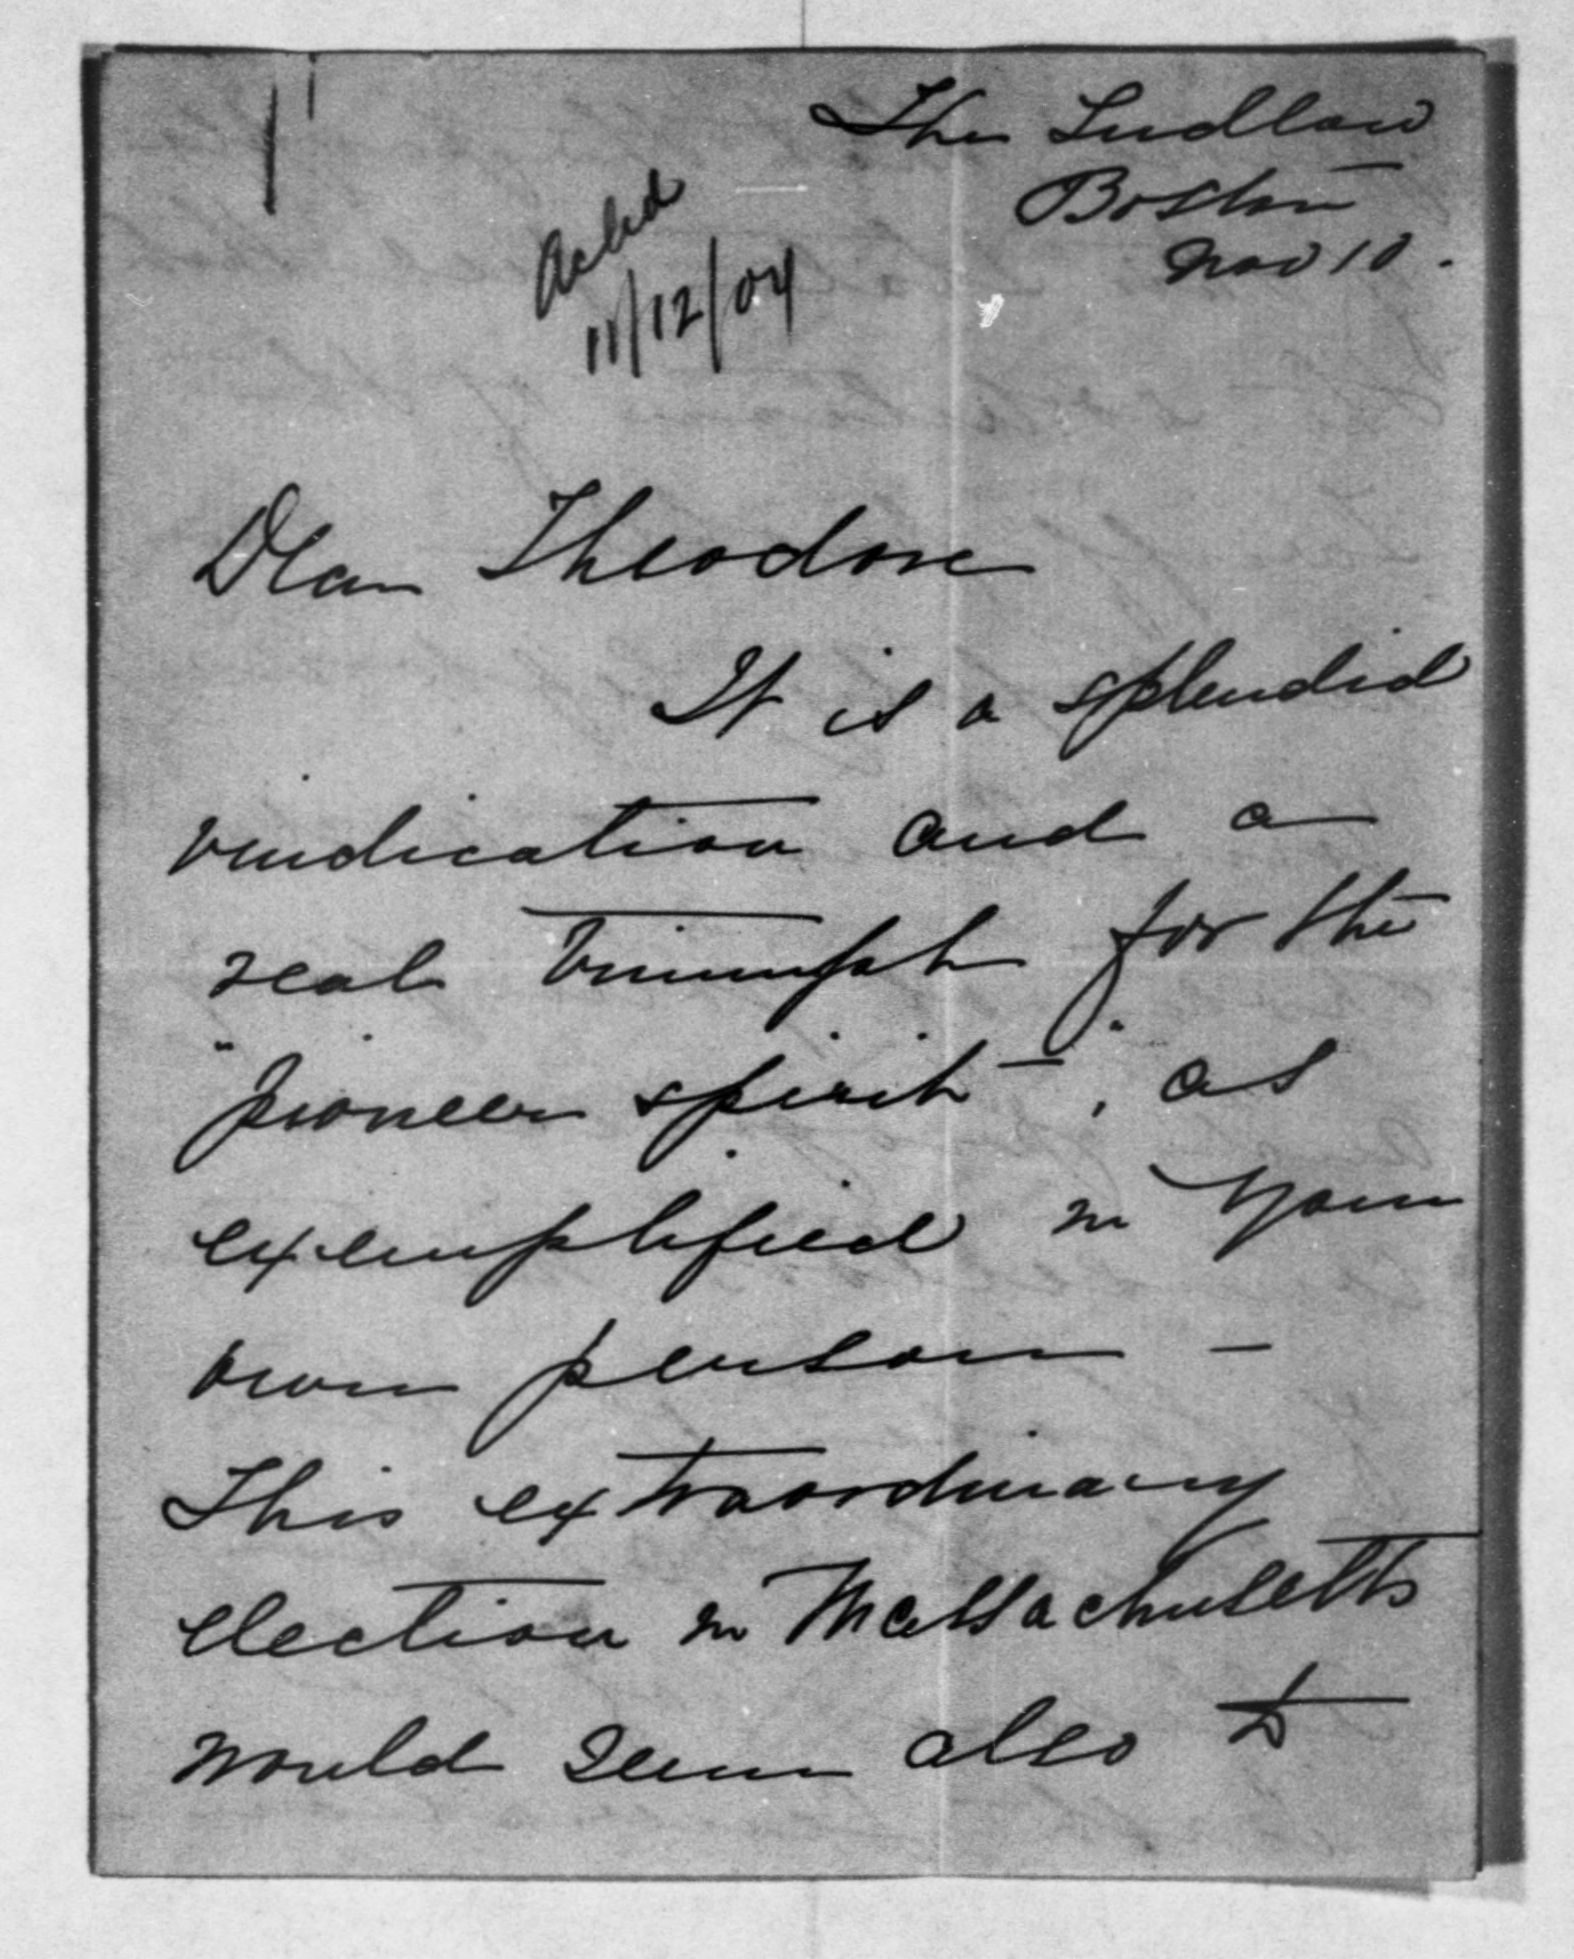 The Ludlow
Boston
Nov 10.
Ackd
11/12/04
Dear Theodore
It is a splendid
vindication and a
real triumph for the
"pioneer spirit", as
exemplified in your
own person –
This extraordinary
election in Massachusetts
would seem also to